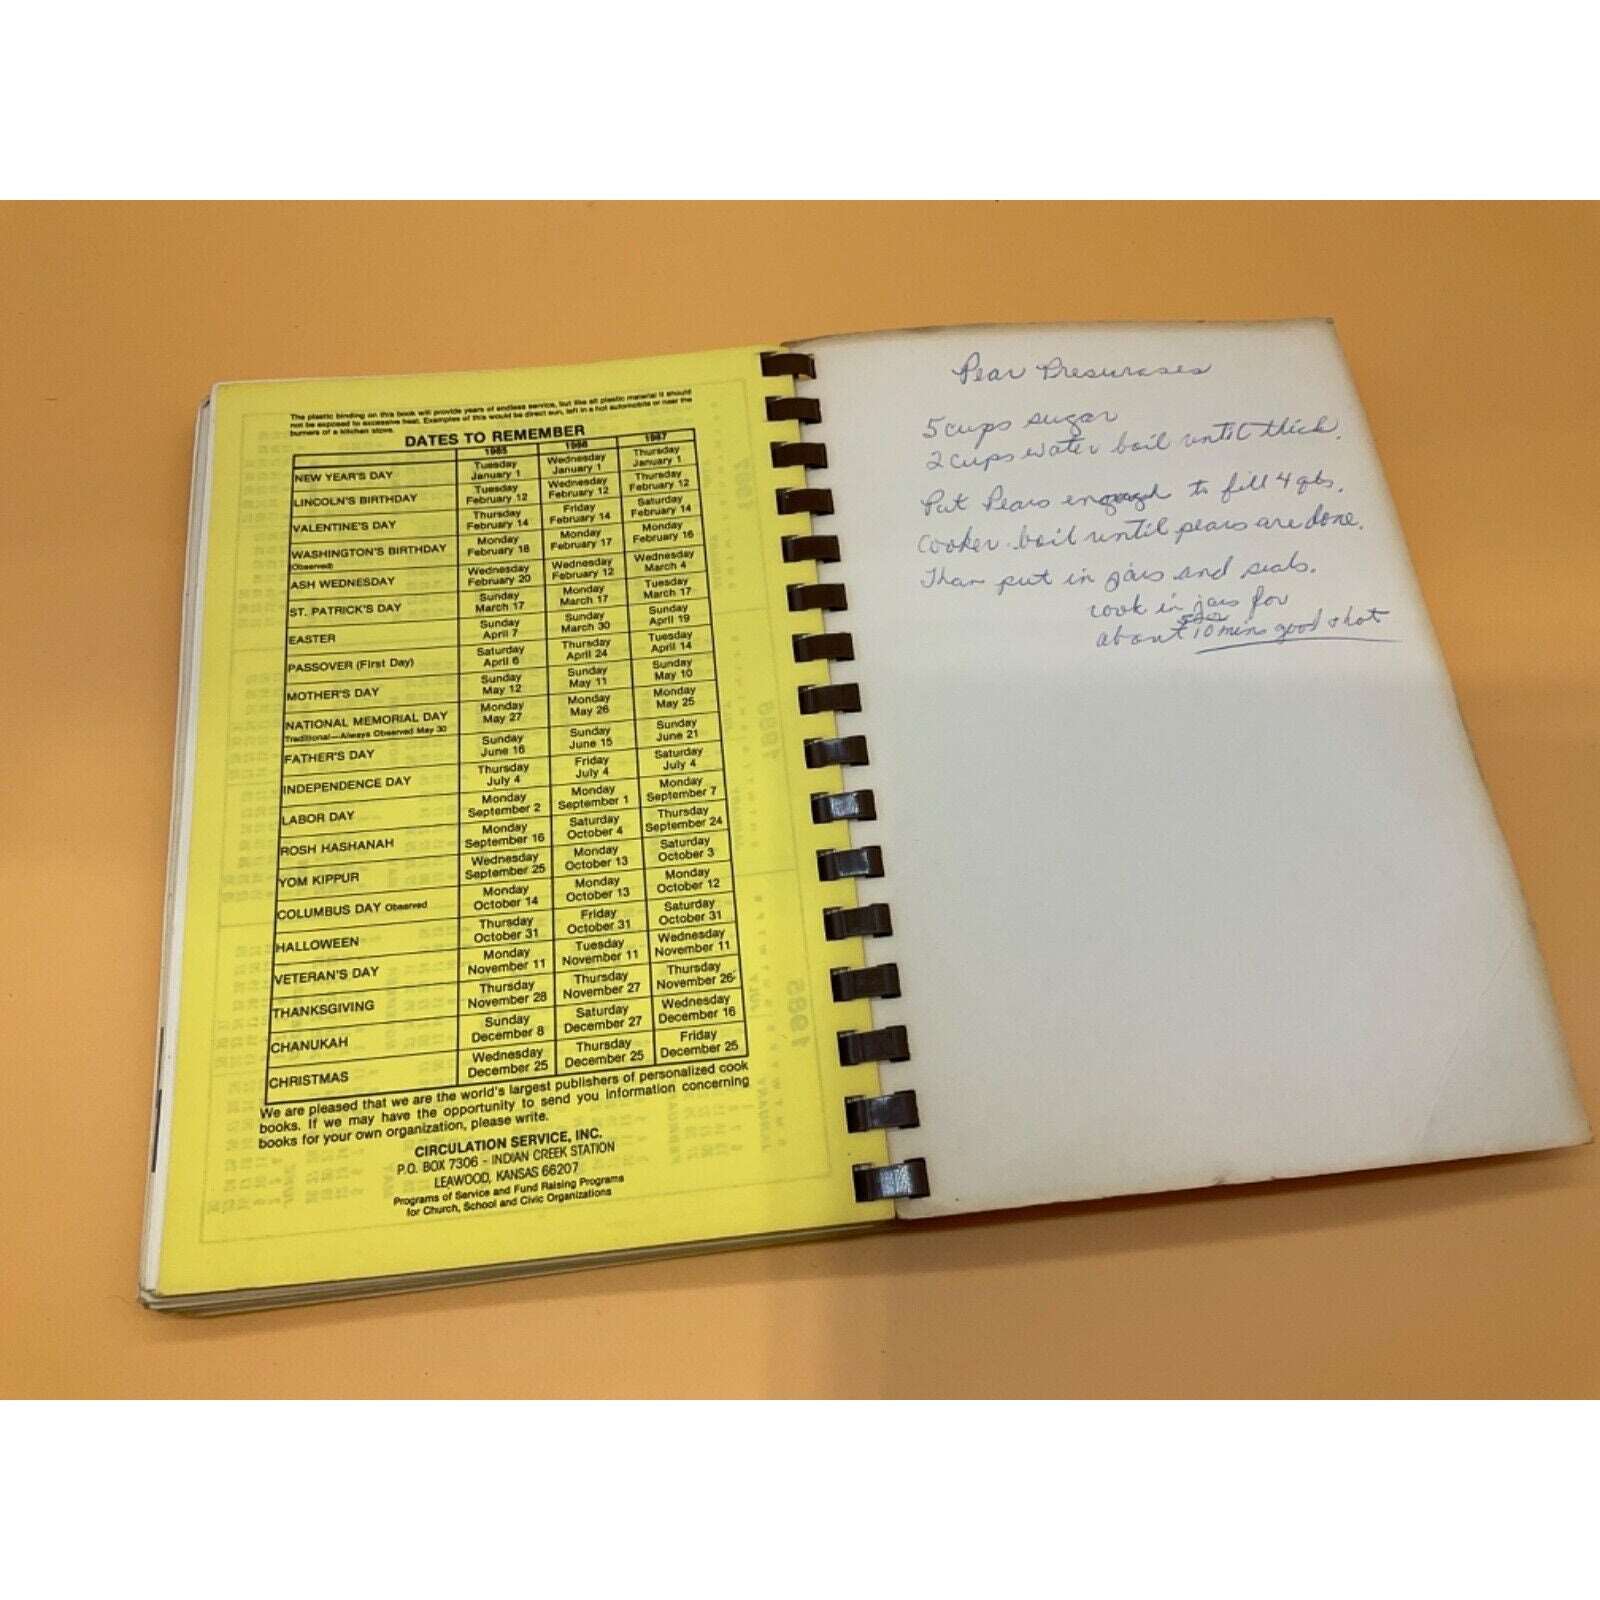 The plastic binding on this book will provide years of endless service, but like all plastic material it should
not be exposed to excessive heat. Examples of this would be direct sun, left in a hot automobile or near the
burners of a kitchen stove.
DATES TO REMEMBER
1985 1986 1987
NEW YEAR'S DAY Tuesday January 1 Wednesday January 1 Thursday January 1
LINCOLN'S BIRTHDAY Tuesday February 12 Wednesday February 12 Thursday February 12
VALENTINE'S DAY Thursday February 14 Friday February 14 Saturday February 14
WASHINGTON'S BIRTHDAY (Observed) Monday February 18 Monday February 17 Monday February 16
ASH WEDNESDAY Wednesday February 20 Wednesday February 12 Wednesday March 4
ST. PATRICK'S DAY Sunday March 17 Monday March 17 Tuesday March 17
EASTER Sunday April 7 Sunday March 30 Sunday April 19
PASSOVER (First Day) Saturday April 6 Thursday April 24 Tuesday April 14
MOTHER'S DAY Sunday May 12 Sunday May 11 Sunday May 10
NATIONAL MEMORIAL DAY Traditional—Always Observed May 30 Monday May 27 Monday May 26 Monday May 25
FATHER'S DAY Sunday June 16 Sunday June 15 Sunday June 21
INDEPENDENCE DAY Thursday July 4 Friday July 4 Saturday July 4
LABOR DAY Monday September 2 Monday September 1 Monday September 7
ROSH HASHANAH Monday September 16 Saturday October 4 Thursday September 24
YOM KIPPUR Wednesday September 25 Monday October 13 Saturday October 3
COLUMBUS DAY Observed Monday October 14 Monday October 13 Monday October 12
HALLOWEEN Thursday October 31 Friday October 31 Saturday October 31
VETERAN'S DAY Monday November 11 Tuesday November 11 Wednesday November 11
THANKSGIVING Thursday November 28 Thursday November 27 Thursday November 26
CHANUKAH Sunday December 8 Saturday December 27 Wednesday December 16
CHRISTMAS Wednesday December 25 Thursday December 25 Friday December 25
We are pleased that we are the world's largest publishers of personalized cook
books. If we may have the opportunity to send you information concerning
books for your own organization, please write.
CIRCULATION SERVICE, INC.
P.O. BOX 7306 - INDIAN CREEK STATION
LEAWOOD, KANSAS 66207
Programs of Service and Fund Raising Programs
for Church, School and Civic Organizations
Pear Preserveses
5 cups sugar
2 cups water boil until thick.
Put Pears enough to fill 4 qts.
Cooker. boil until pears are done.
Than put in jars and seals.
cook in jars for
about 10 mins good & hot